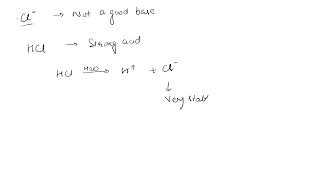 Cl⁻ → Not a good base
HCl → Strong acid
HCl —H2O→ H⁺ + Cl⁻
↓
Very stabl